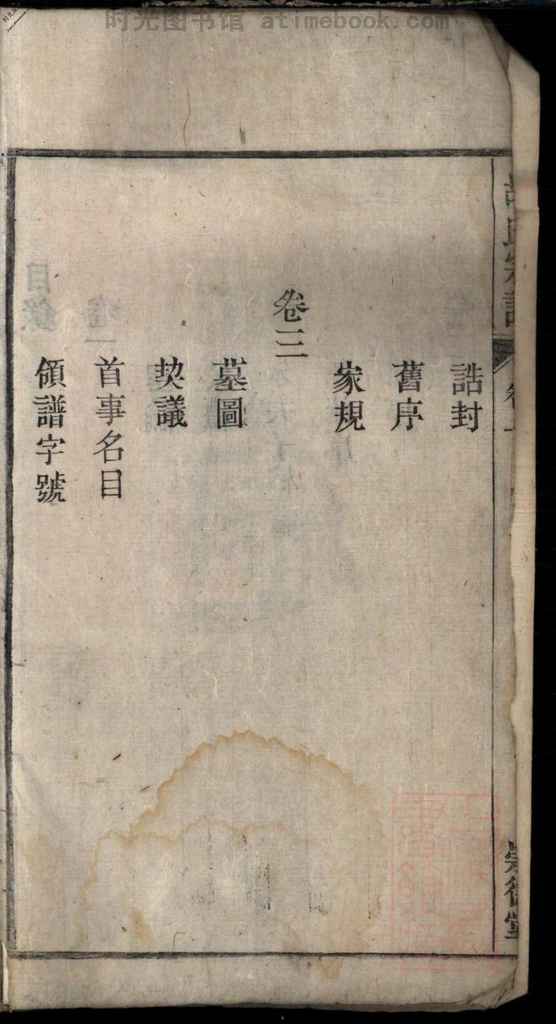 时光图书馆 atimebook.com
誥封
舊序
家規
卷三
墓圖
契議
首事名目
領譜字號
氏宗譜
卷
堂